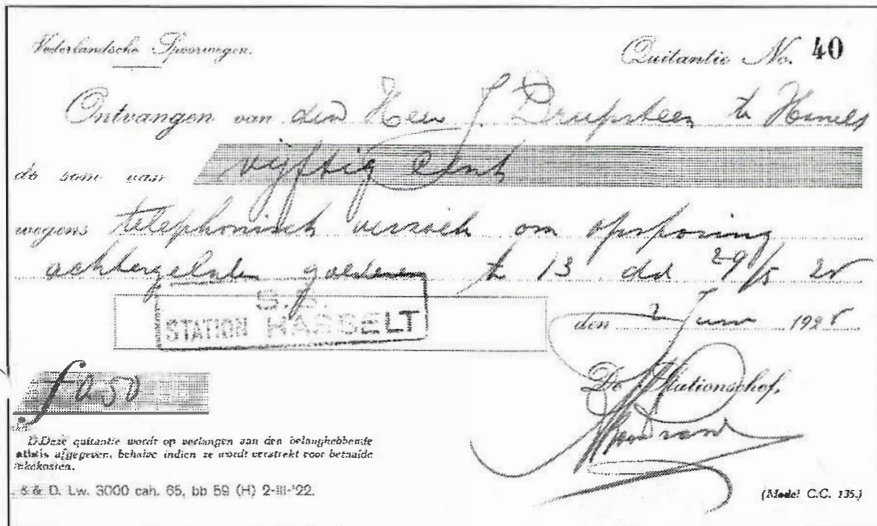 Nederlandsche Spoorwegen.
Quitantie No. 40
Ontvangen van den Heer J. Drupsteen te
de som van vijftig cent
wegens telephonisch verzoek om opsporing
goederen 13 dd 29/5
S.S.
STATION HASSELT
den 2 Juni 192
f 0.50
De Stationschef,
D.Deze quitantie wordt op verlangen aan den belanghebbende
afgegeven, behalve indien ze wordt verstrekt voor betaalde
. & D. Lw. 3000 cah. 65, bb 59 (H) 2-III-'22.
(Model C.C. 135.)